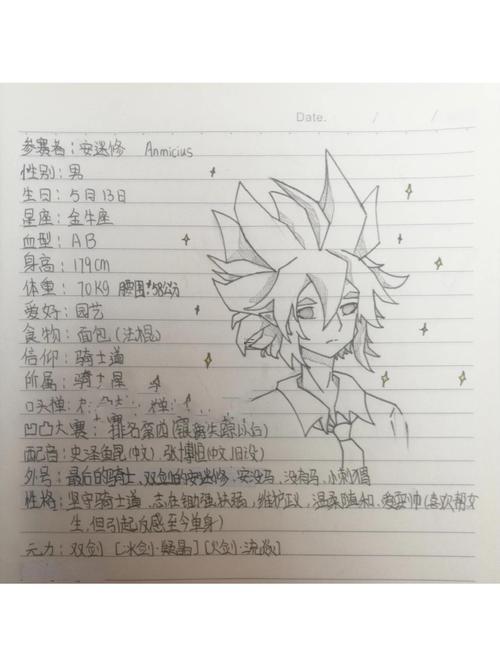 Date.        /        /
参赛者：安迷修 Anmicius
性别：男
生日：5月13日
星座：金牛座
血型：AB
身高：179cm
体重：70KG 腰围：58公分
爱好：园艺
食物：面包(法棍)
信仰：骑士道
所属：骑士星
口头禅：
凹凸大赛：排名第四(银爵失踪以后)
配音：史泽鲲(中文)、张博恒(中文旧设)
外号：最后的骑士、双剑的安迷修、安没马、没有马、小刺猬
性格：坚守骑士道，志在锄强扶弱，维护正义，温柔随和、爱耍帅(喜欢帮女
生，但引起反感至今单身)
元力：双剑 [冰剑·凝晶][火剑·流焱]